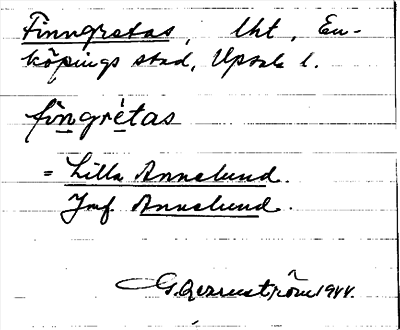 Finngretas, lht, En-
köpings stad, Upsala l.
fìngrétas
= Lilla Annelund.
Jmf. Annelund.
1944.